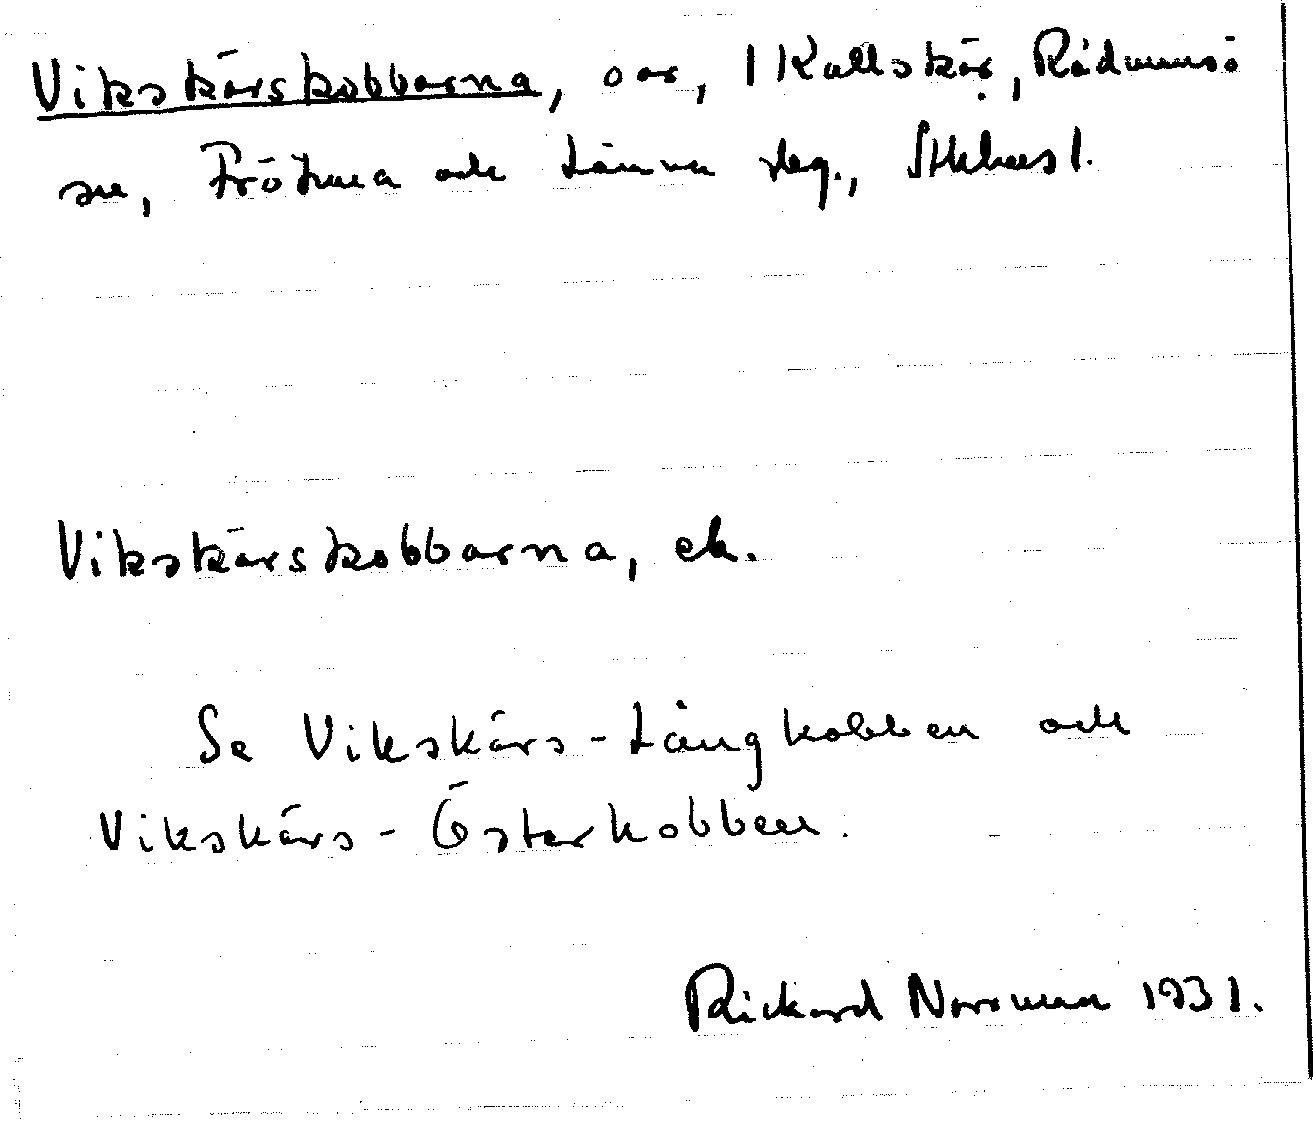 Vikskärskobbarna, öar, 1 Kallskär, Rådmansö
sn, Frötuna och Länna skg., Sthlms l.
Vikskärskobbarna, ek.
Se Vikskärs-Långkobben och
Vikskärs-Österkobben.
Rickard Norman 1931.